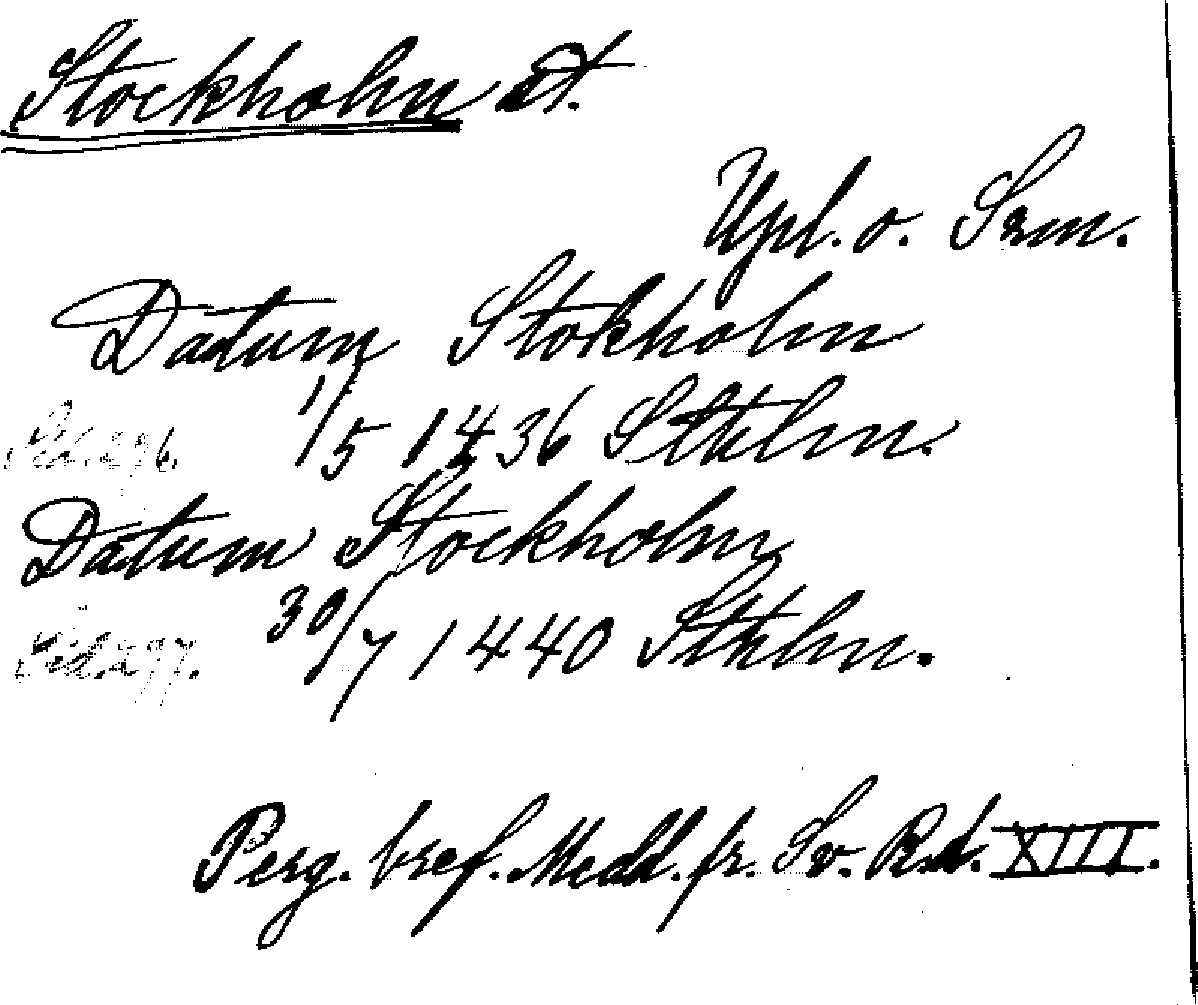 Stockholm st.
Upl. o. Srm.
Datum Stokholm
1/5 1436 Sthlm.
Datum Stockholm
30/7 1440 Sthlm.
Perg. bref. Medd. fr. Sv. R.A. XIII.